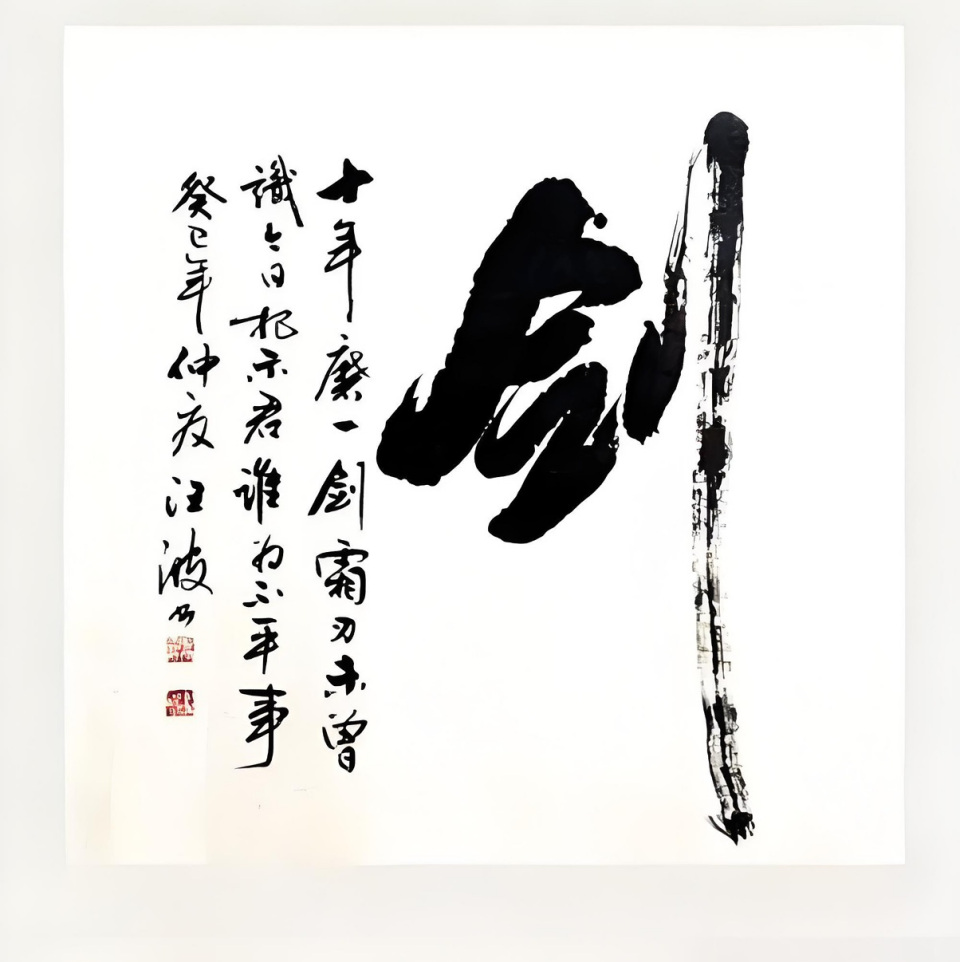 剑
十年磨一劍霜刃未曾
識今日把示君誰为不平事
癸巳年仲夏汪波书